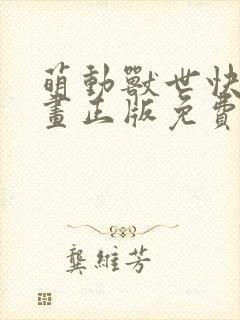 萌動獸世快
畫正版免費
龔維芳